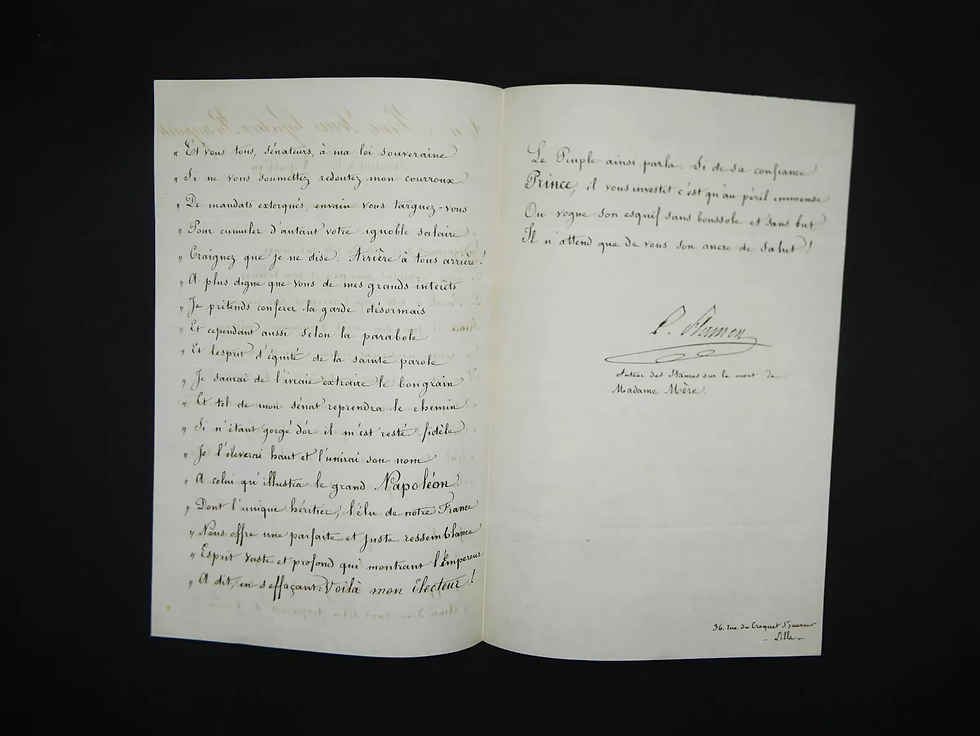 " Et vous tous, sénateurs, à ma loi souveraine
" Si ne vous soumettez redoutez mon courroux.
" De mandats extorqués, envain vous targuez-vous
" Pour cumuler d'autant votre ignoble salaire
" Craignez que je ne dise : Arrière à tous arrière !
" A plus digne que vous de mes grands intérêts
" Je prétends conférer la garde désormais
" Et cependant aussi selon la parabole
" Et l'esprit d'équité de la sainte parole
" Je saurai de l'ivraie extraire le bon grain
" Et tel de mon sénat reprendra le chemin
" Si n'étant gorgé d'or il m'est resté fidèle
" Je l'élèverai haut et l'unirai son nom
" A celui qu'illustra le grand Napoléon.
" Dont l'unique héritier, l'élu de notre France
" Nous offre une parfaite et juste ressemblance
" Esprit vaste et profond qui montrant l'Empereur
" A dit, en s'effaçant, Voilà mon Electeur !
Le Peuple ainsi parla. Si de sa confiance
Prince, il vous investit c'est qu'au péril immense
Ou vogue son esquif sans boussole et sans but
Il n'attend que de vous son ancre de salut !
P.
Auteur des Stances sur la mort de
Madame Mère.
36. rue du Croquet St Sauveur
- Lille -